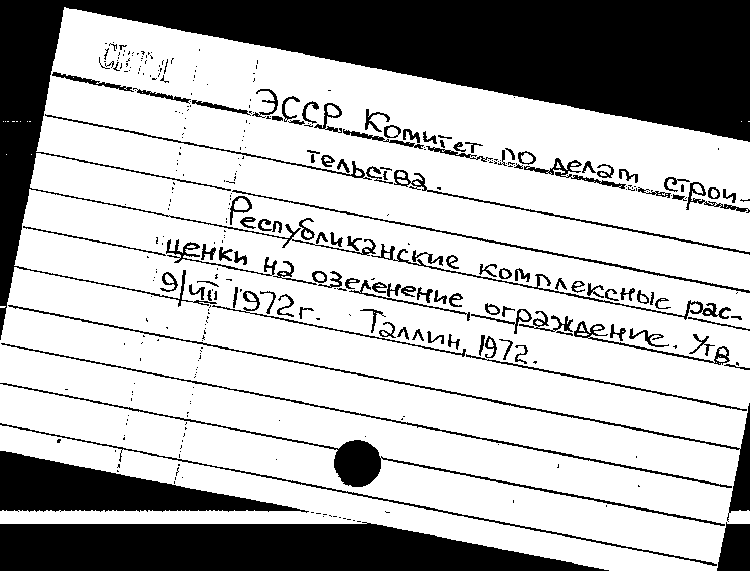 ЭССР Комитет по делам строи-
тельства.
Республиканские комплексные рас-
ценки на озеленение, ограждение. Утв.
9/VIII 1972г. Таллин, 1972.